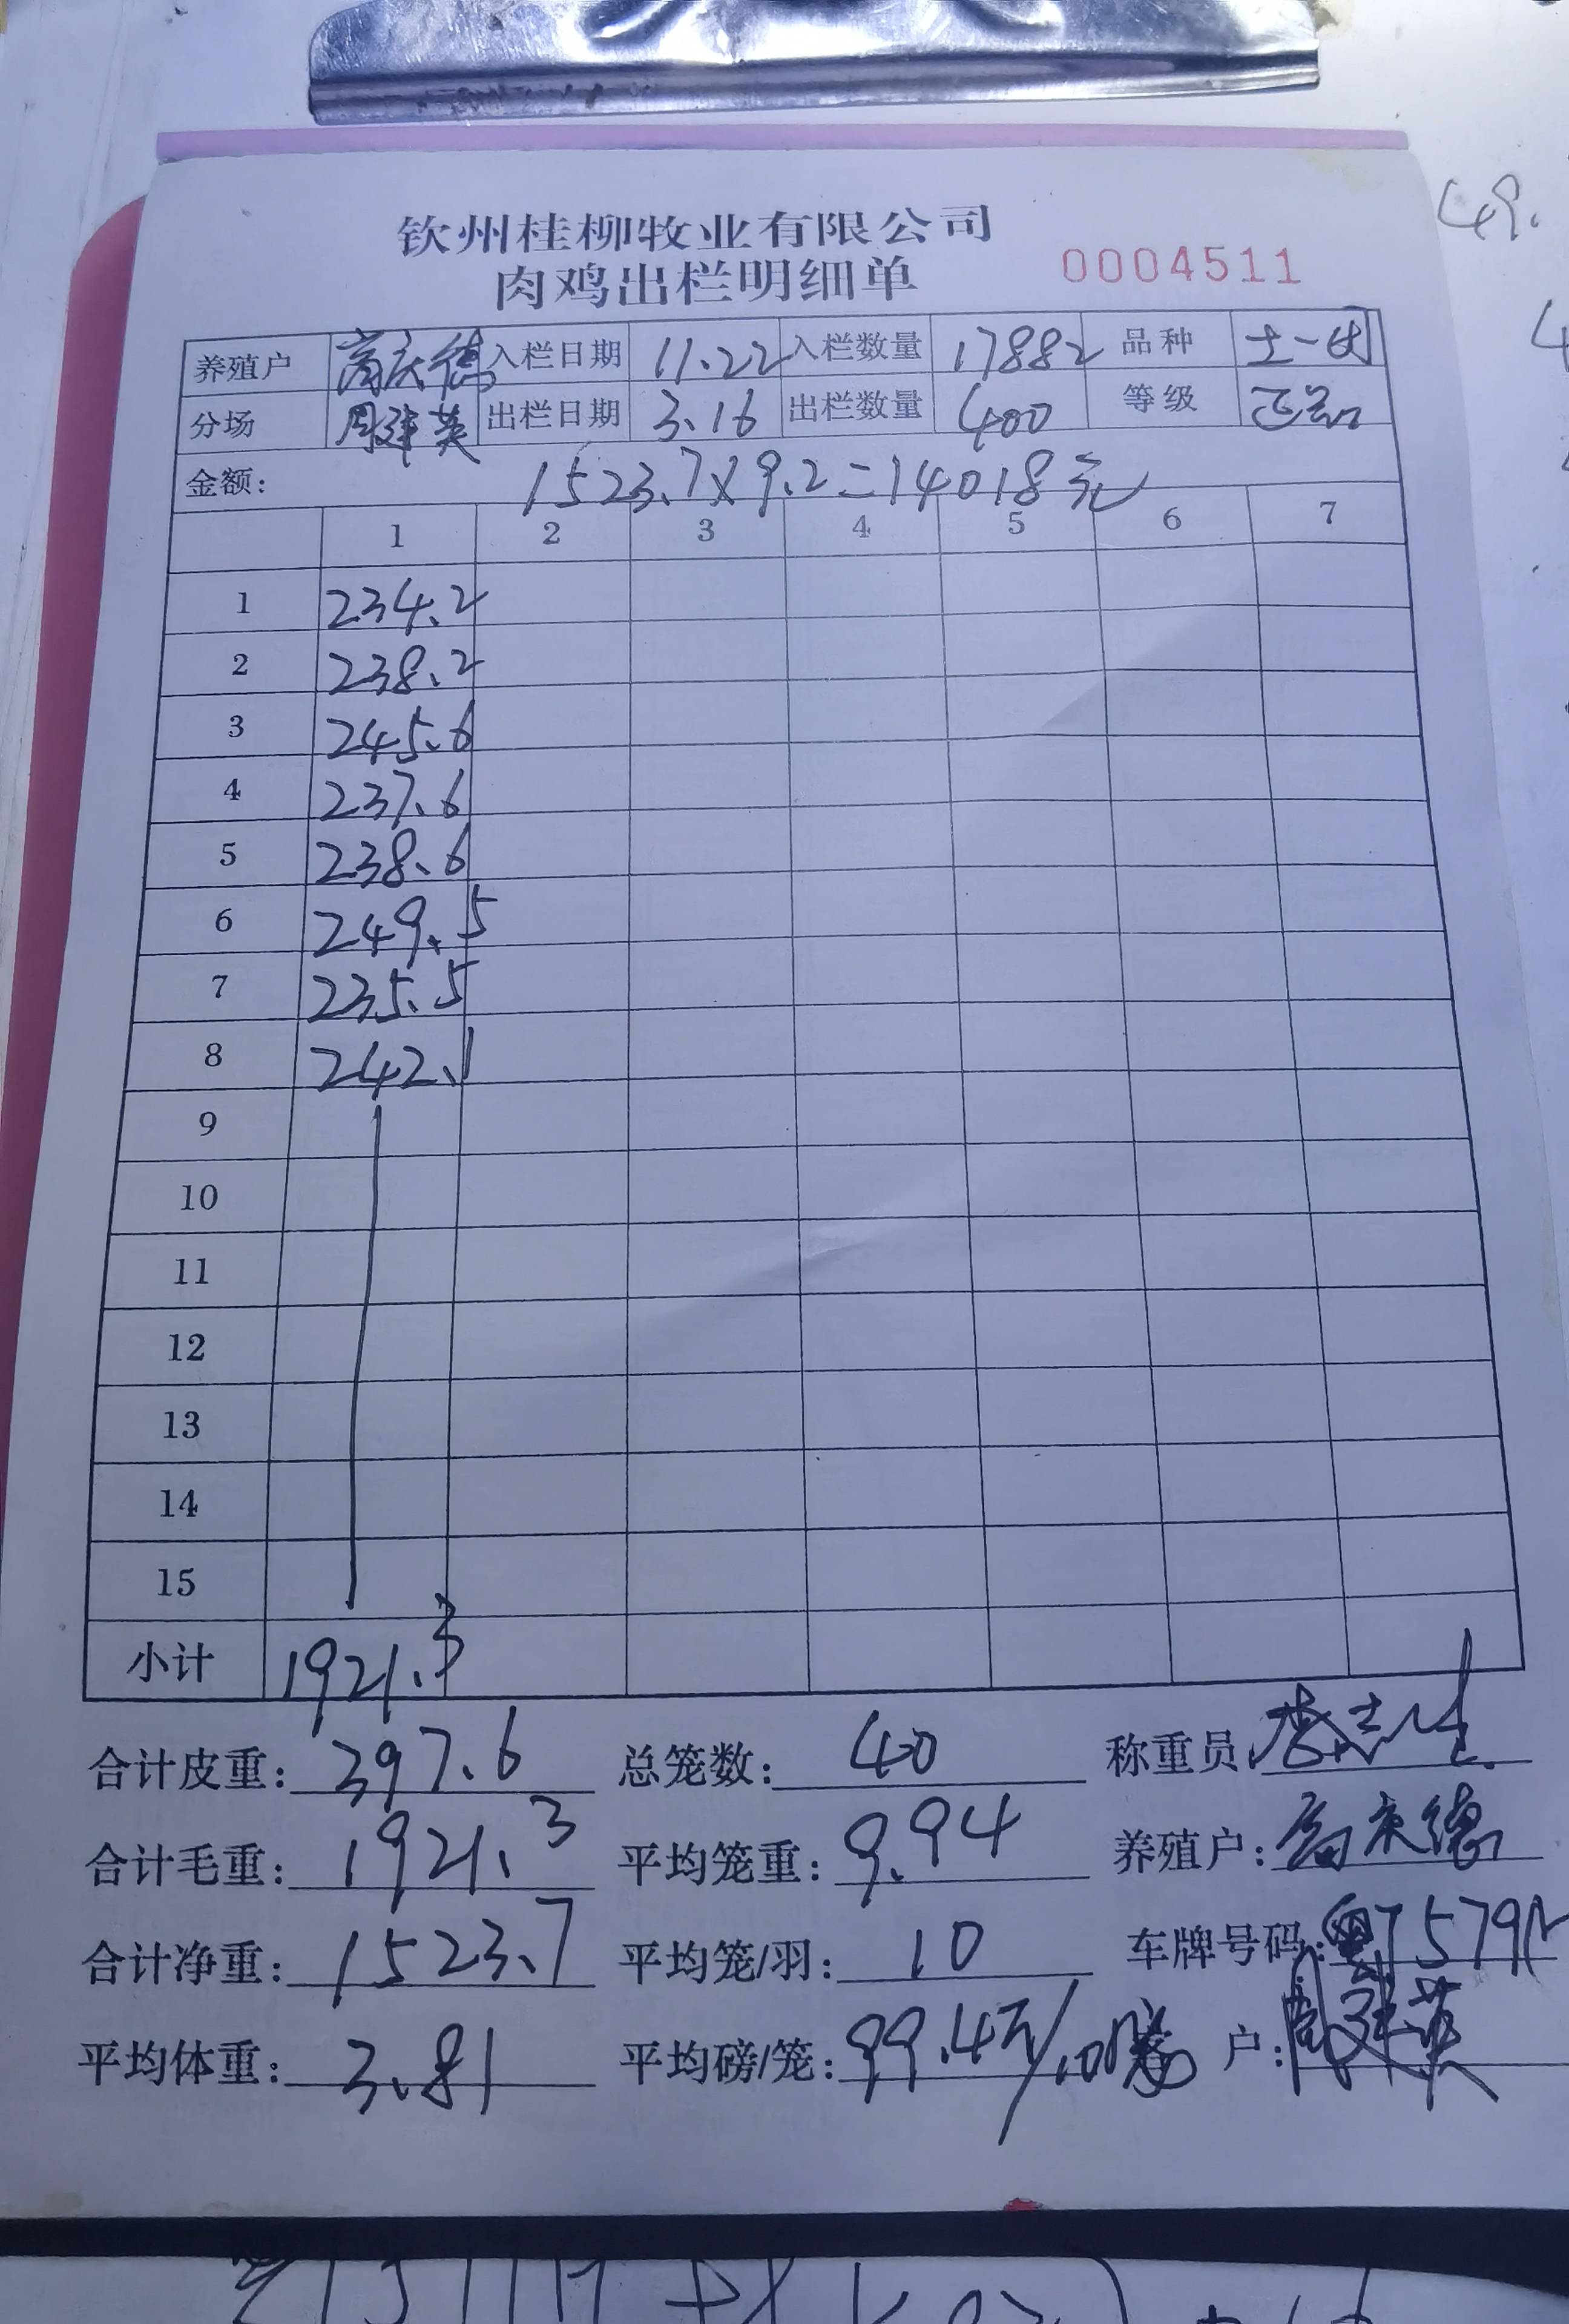 钦州桂柳牧业有限公司
肉鸡出栏明细单 0004511
养殖户 庆德 入栏日期 11.22 入栏数量 17882 品种 土一
分场 周建英 出栏日期 3.16 出栏数量 400 等级 正品
金额: 1523.7×9.2=14018元
1 2 3 4 5 6 7
1 234.2
2 238.2
3 245.6
4 237.6
5 238.6
6 249.5
7 235.5
8 242.1
9
10
11
12
13
14
15
小计 1921.3
合计皮重: 397.6 总笼数: 40 称重员: 李志
合计毛重: 1921.3 平均笼重: 9.94 养殖户: 庆德
合计净重: 1523.7 平均笼/羽: 10 车牌号码: 粤T579
平均体重: 3.81 平均磅/笼: 99.4 户: 周建英
49.